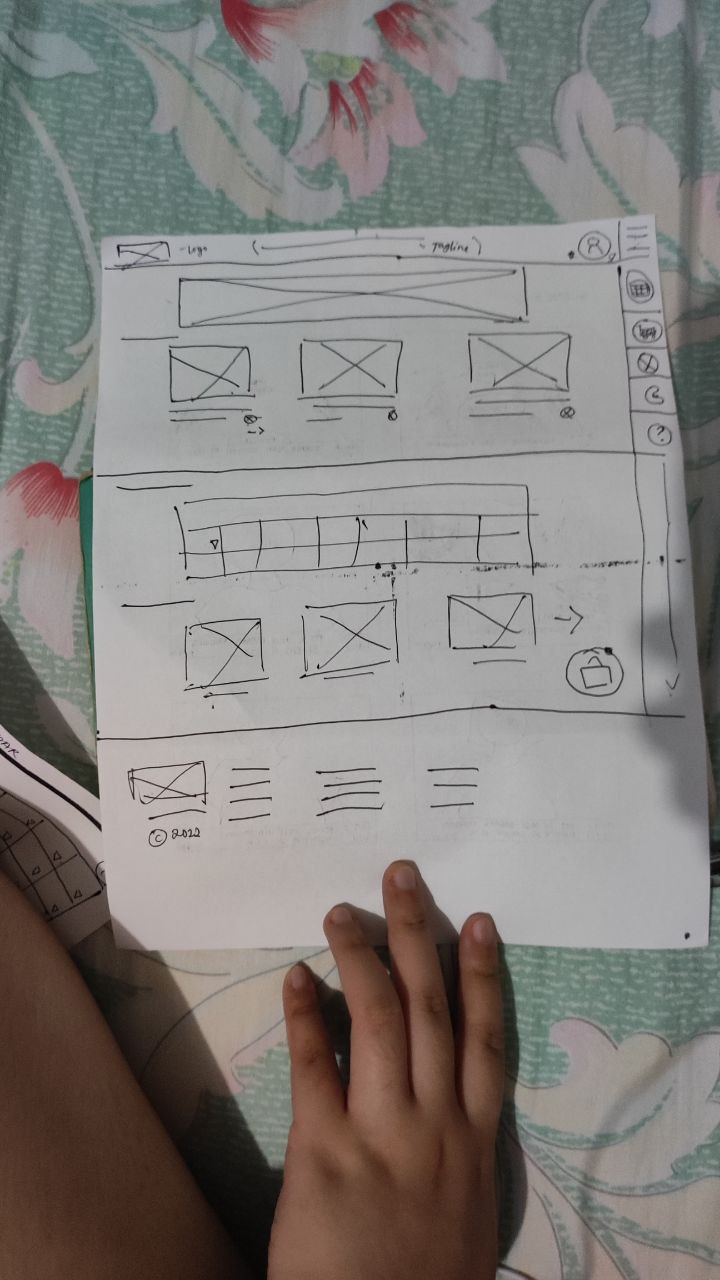 -Logo
( Tagline )
R
?
© 2022